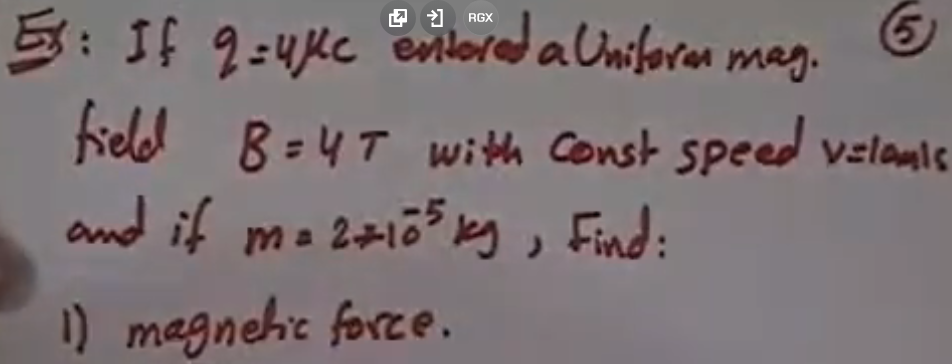 RGX
Ex: If q=4μc entered a Uniform mag. ⑤
field B=4T with Const speed
and if m=2*10⁻⁵ kg, Find:
1) magnetic force.